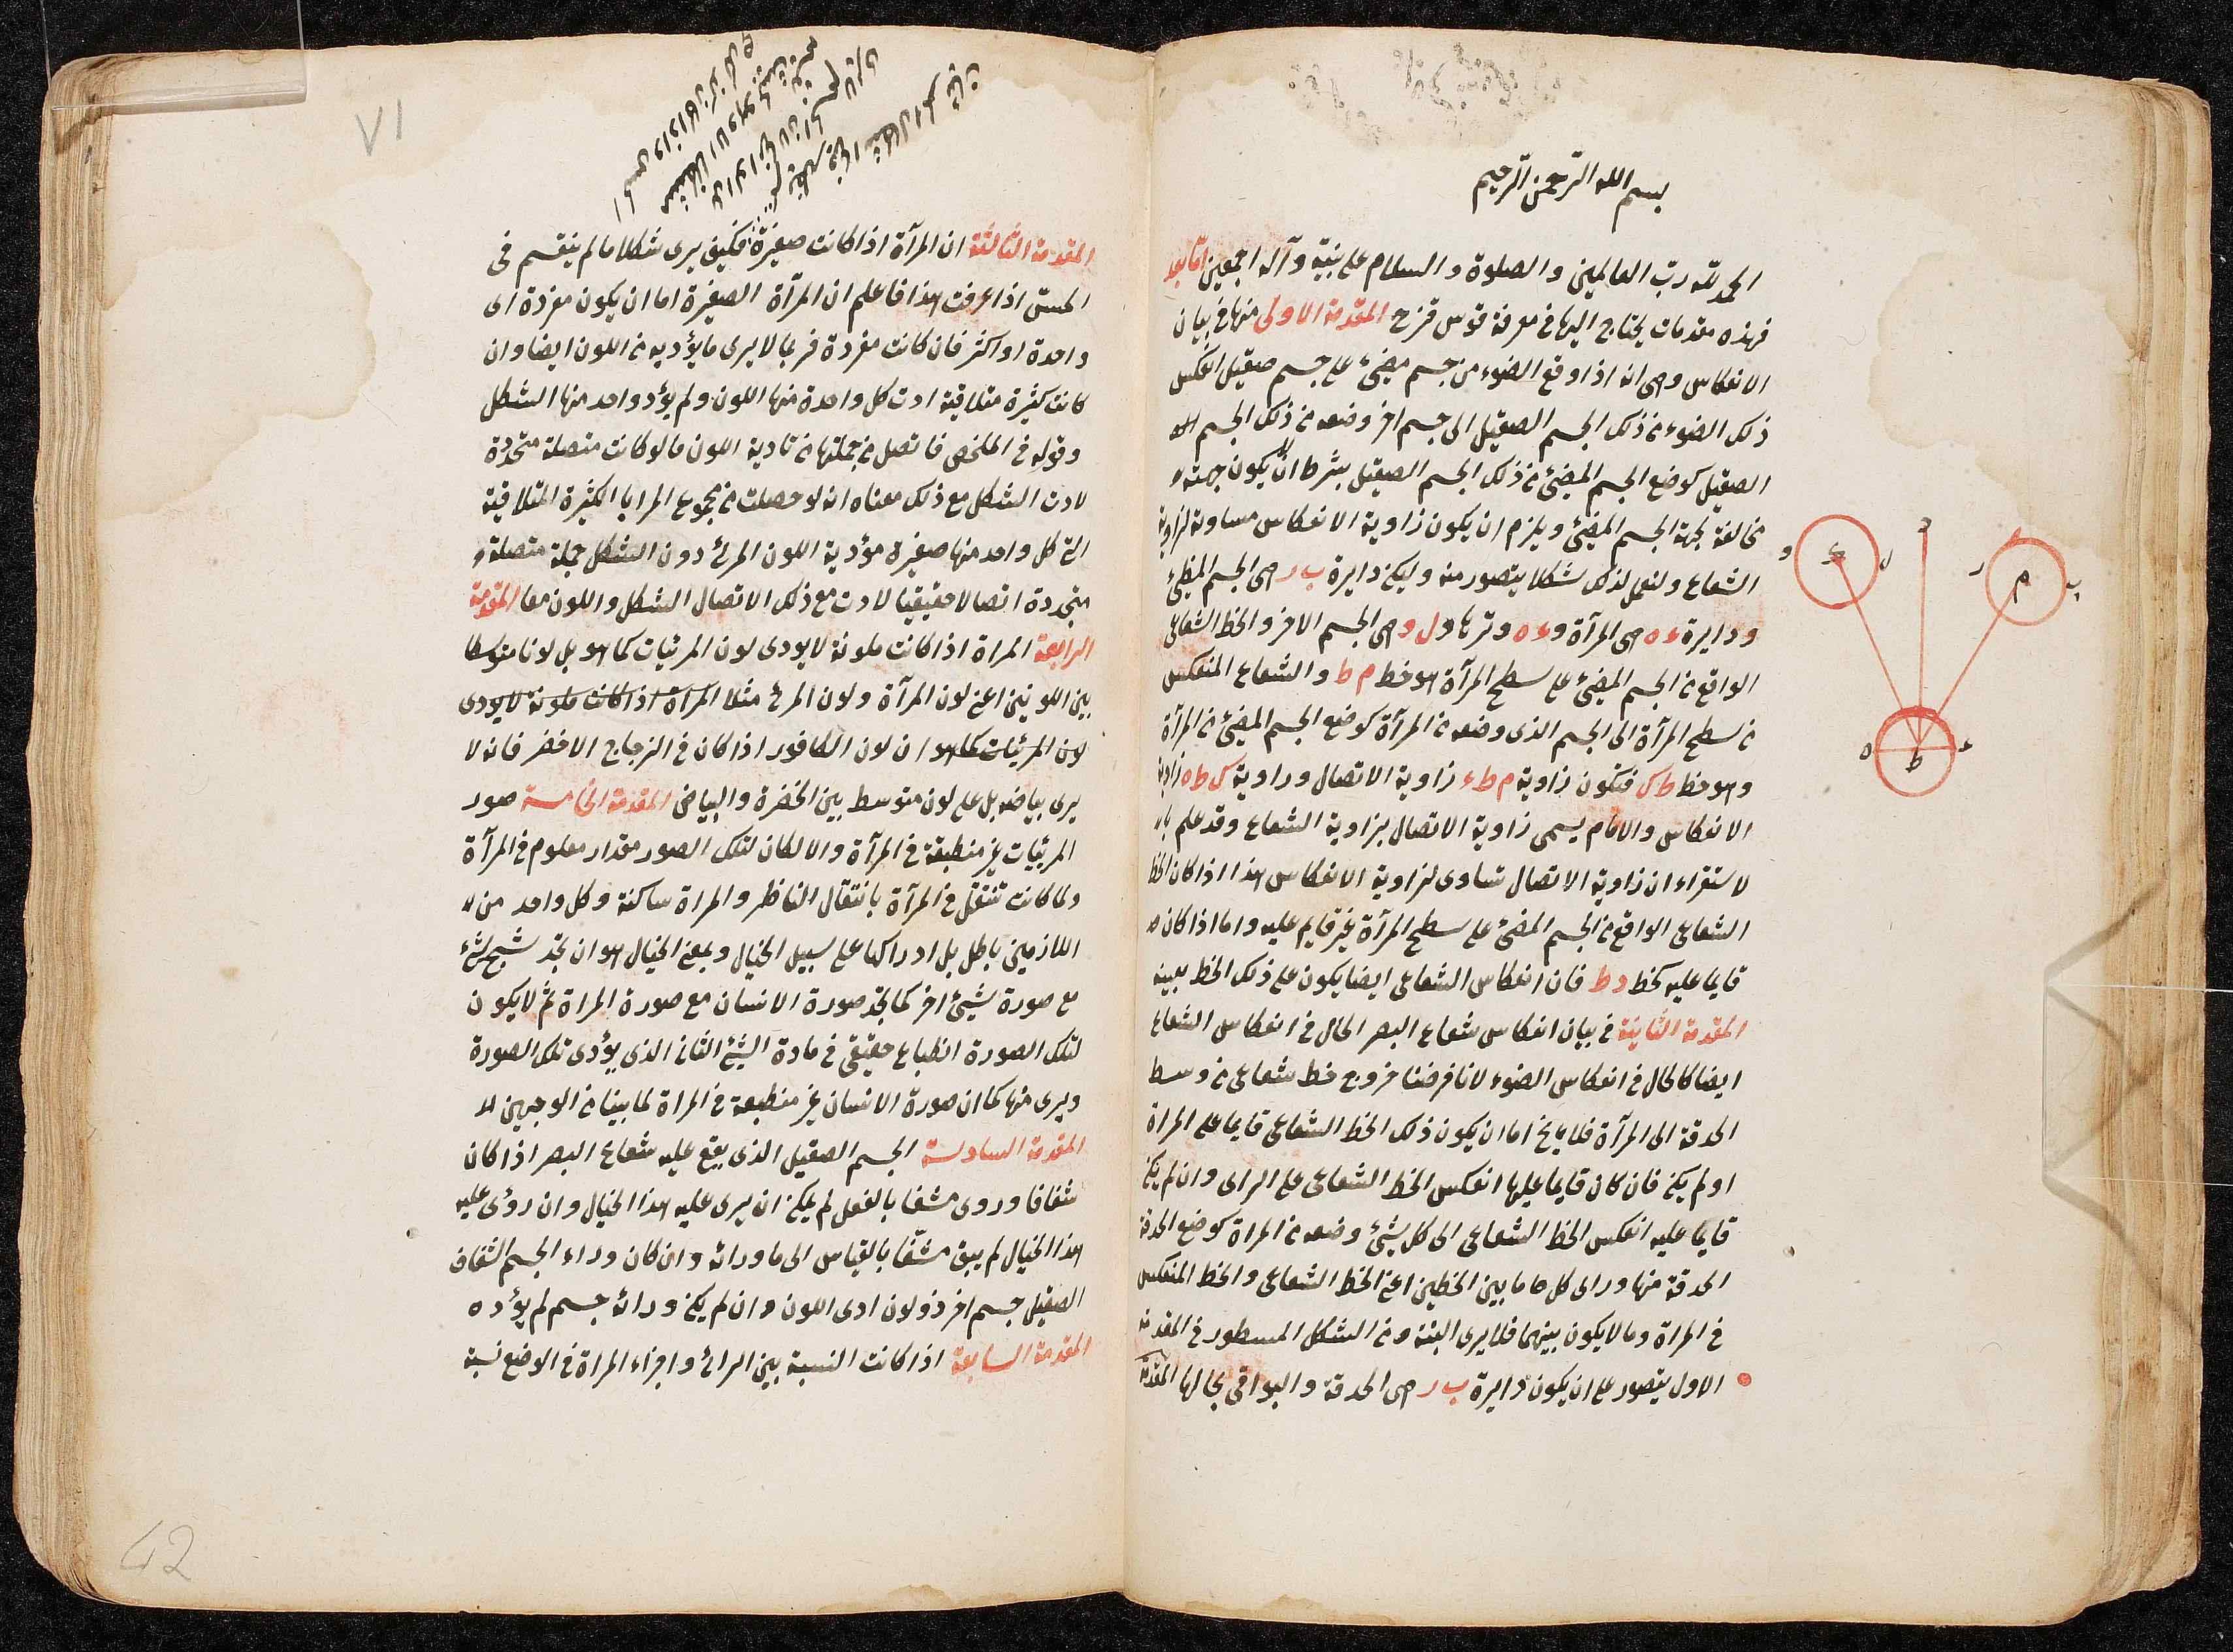 بسم الله الرحمن الرحيم
الحمد لله رب العالمين والصلوة والسلام على نبيه وآله اجمعين اما بعد
فهذه مقدمات يحتاج اليها في معرفة قوس قزح المقدمة الاولى منها في بيان
الانعكاس وهى انه اذا وقع الضوء من جسم مضيئ على جسم صقيل انعكس
ذلك الضوء من ذلك الجسم الصقيل الى جسم اخر وضعه من ذلك الجسم
الصقيل كوضع الجسم المضيئ من ذلك الجسم الصقيل بشرط ان يكون جهته
مخالفة لجهة الجسم المضيئ ويلزم ان يكون زاوية الانعكاس مساوية لزاوية
الشعاع ولنعمل لذلك شكلا يتصور منه وليكن دايرة ب ر هى الجسم المضيئ
ودايرة ء ه هى المرآة و ء ه وترها و ل و هى الجسم الاخر والخط الشعاعى
الواقع من الجسم المضيئ على سطح المرآة هو خط م ط والشعاع المنعكس
من سطح المرآة الى الجسم الذى وضعه من المرآة كوضع الجسم المضيئ من المرآة
وهو خط ط ك فتكون زاوية م ط ء زاوية الاتصال وزاوية ك ط ه زاوية
الانعكاس والامام يسمى زاوية الاتصال بزاوية الشعاع وقد علم با
لاستقراء ان زاوية الاتصال تساوى لزاوية الانعكاس هذا اذا كان الخط
الشعاعى الواقع من الجسم المضيئ على سطح المرآة غير قايم عليه واما اذا كان
قايما عليه كخط د ط فان انعكاس الشعاعى ايضا يكون على ذلك الخط بعينه
المقدمة الثانية في بيان انعكاس شعاع البصر الحال في انعكاس الشعاع
ايضا كالحال في انعكاس الضوء لانا فرضنا خروج خط شعاعى من وسط
الحدقة الى المرآة فلا يخ اما ان يكون ذلك الخط الشعاعى قايما على المراة
او لم يكن فان كان قايما عليها انعكس الخط الشعاعى على الراى وان لم يكن
قايما عليه انعكس الخط الشعاعى الى كل شيئ وضعه من المراة كوضع الحدقة
الحدقة منها وراى كل ما بين الخطين اعنى الخط الشعاعى والخط المنعكس
في المراة وما لا يكون بينهما فلا يرى البتة ومن الشكل المسطور في المقدمة
الاول يتصور على ان يكون دايرة ب ر هى الحدقة والبواقى بحالها المقدمة
و ك ل
د
ر م ب
ه ط ء
٧١
المقدمة الثالثة ان المرآة اذا كانت صغيرة فكيف يرى شكلا ما لم ينقسم في
الحس اذا عرفت هذا فاعلم ان المرآة الصغيرة اما ان يكون مفردة اى
واحدة او اكثر فان كانت مفردة فربما لا يرى ما يؤديه من اللون ايضا وان
كانت كثيرة متلاقية ادت كل واحدة منها اللون ولم يؤد واحد منها الشكل
وقوله في الملخص فاتصل من جملتها من تادية اللون ما لو كانت متصلة متحدة
لادت الشكل مع ذلك معناه انه لو حصلت من مجموع المرايا الكثيرة المتلاقية
التى كل واحد منها صغيرة مؤدية اللون المرئ دون الشكل جملة متصلة
متحددة اتصالا حقيقيا لادت مع ذلك الاتصال الشكل واللون معا المقدمة
الرابعة المراة اذا كانت ملونة لا يودى لون المرئيات كما هو بل لونا متوسطا
بين اللونين اعنى لون المرآة ولون المرئ مثلا المرآة اذا كانت ملونة لا يودى
لون المرئيات كما هو ان لون الكافور اذا كان في الزجاج الاخضر فانه لا
يرى بياضه بل على لون متوسط بين الخضرة والبياض المقدمة الخامسة صور
المرئيات غير منطبعة في المرآة والا لكان لتلك الصور مقدار معلوم في المرآة
ولما كانت تنتقل في المرآة بانتقال الناظر والمراة ساكنة وكل واحد من
اللازمين باطل بل ادراكها على سبيل الخيال ونعنى الخيال هو ان تجد شبح شئ
مع صورة شيئ اخر كما تجد صورة الانسان مع صورة المراة ثم لا يكون
لتلك الصورة انطباع حقيقى في مادة الشئ الثانى الذى يؤدى تلك الصورة
ويرى منها كما ان صورة الانسان غير منطبعة في المراة لما بينا من الوجهين
المقدمة السادسة الجسم الصقيل الذى يقع عليه شعاع البصر اذا كان
شفافا وروى مشفا بالفعل لم يمكن ان يرى عليه هذا الخيال وان رؤى عليه
هذا الخيال لم يبق مشفا بالقياس الى ما ورائه وان كان وراء الجسم الشفاف
الصقيل جسم اخر ذو لون ادى اللون وان لم يكن ورائه جسم لم يؤده
المقدمة السابعة اذا كانت النسبة بين الرائ واجزاء المراة في الوضع نسبة
42